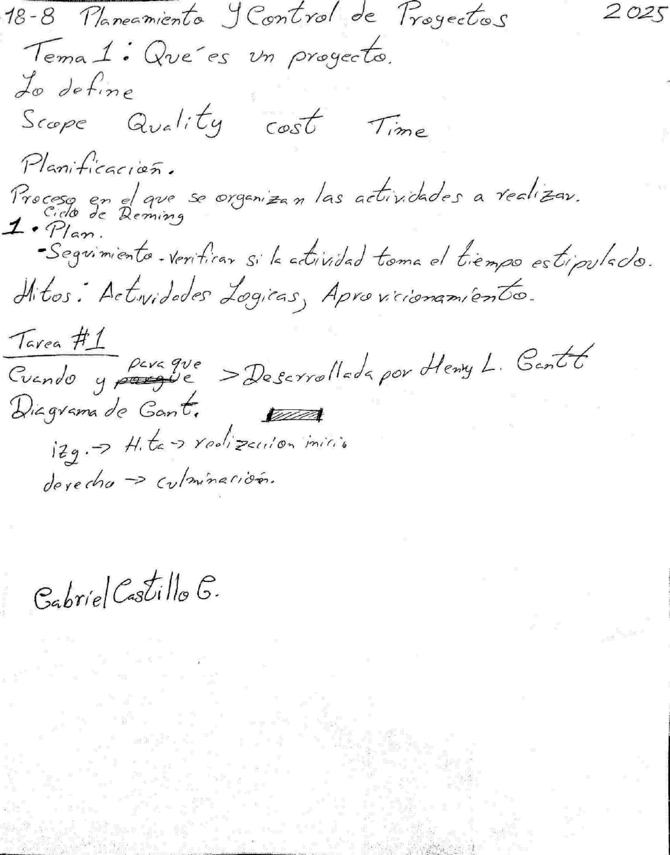 18-8 Planeamiento y Control de Proyectos 2025
Tema 1: Qué es un proyecto.
Lo define
Scope Quality cost Time
Planificación.
Proceso en el que se organizan las actividades a realizar.
Ciclo de Deming
1. Plan.
-Seguimiento - Verificar si la actividad toma el tiempo estipulado.
Hitos: Actividades Logicas, Aprovicionamiento.
Tarea #1
para que
Cuando y porque > Desarrollada por Henry L. Gantt
Diagrama de Gant.
izq. → Hito → realizacion inicio
derecho → culminación.
Gabriel Castillo G.